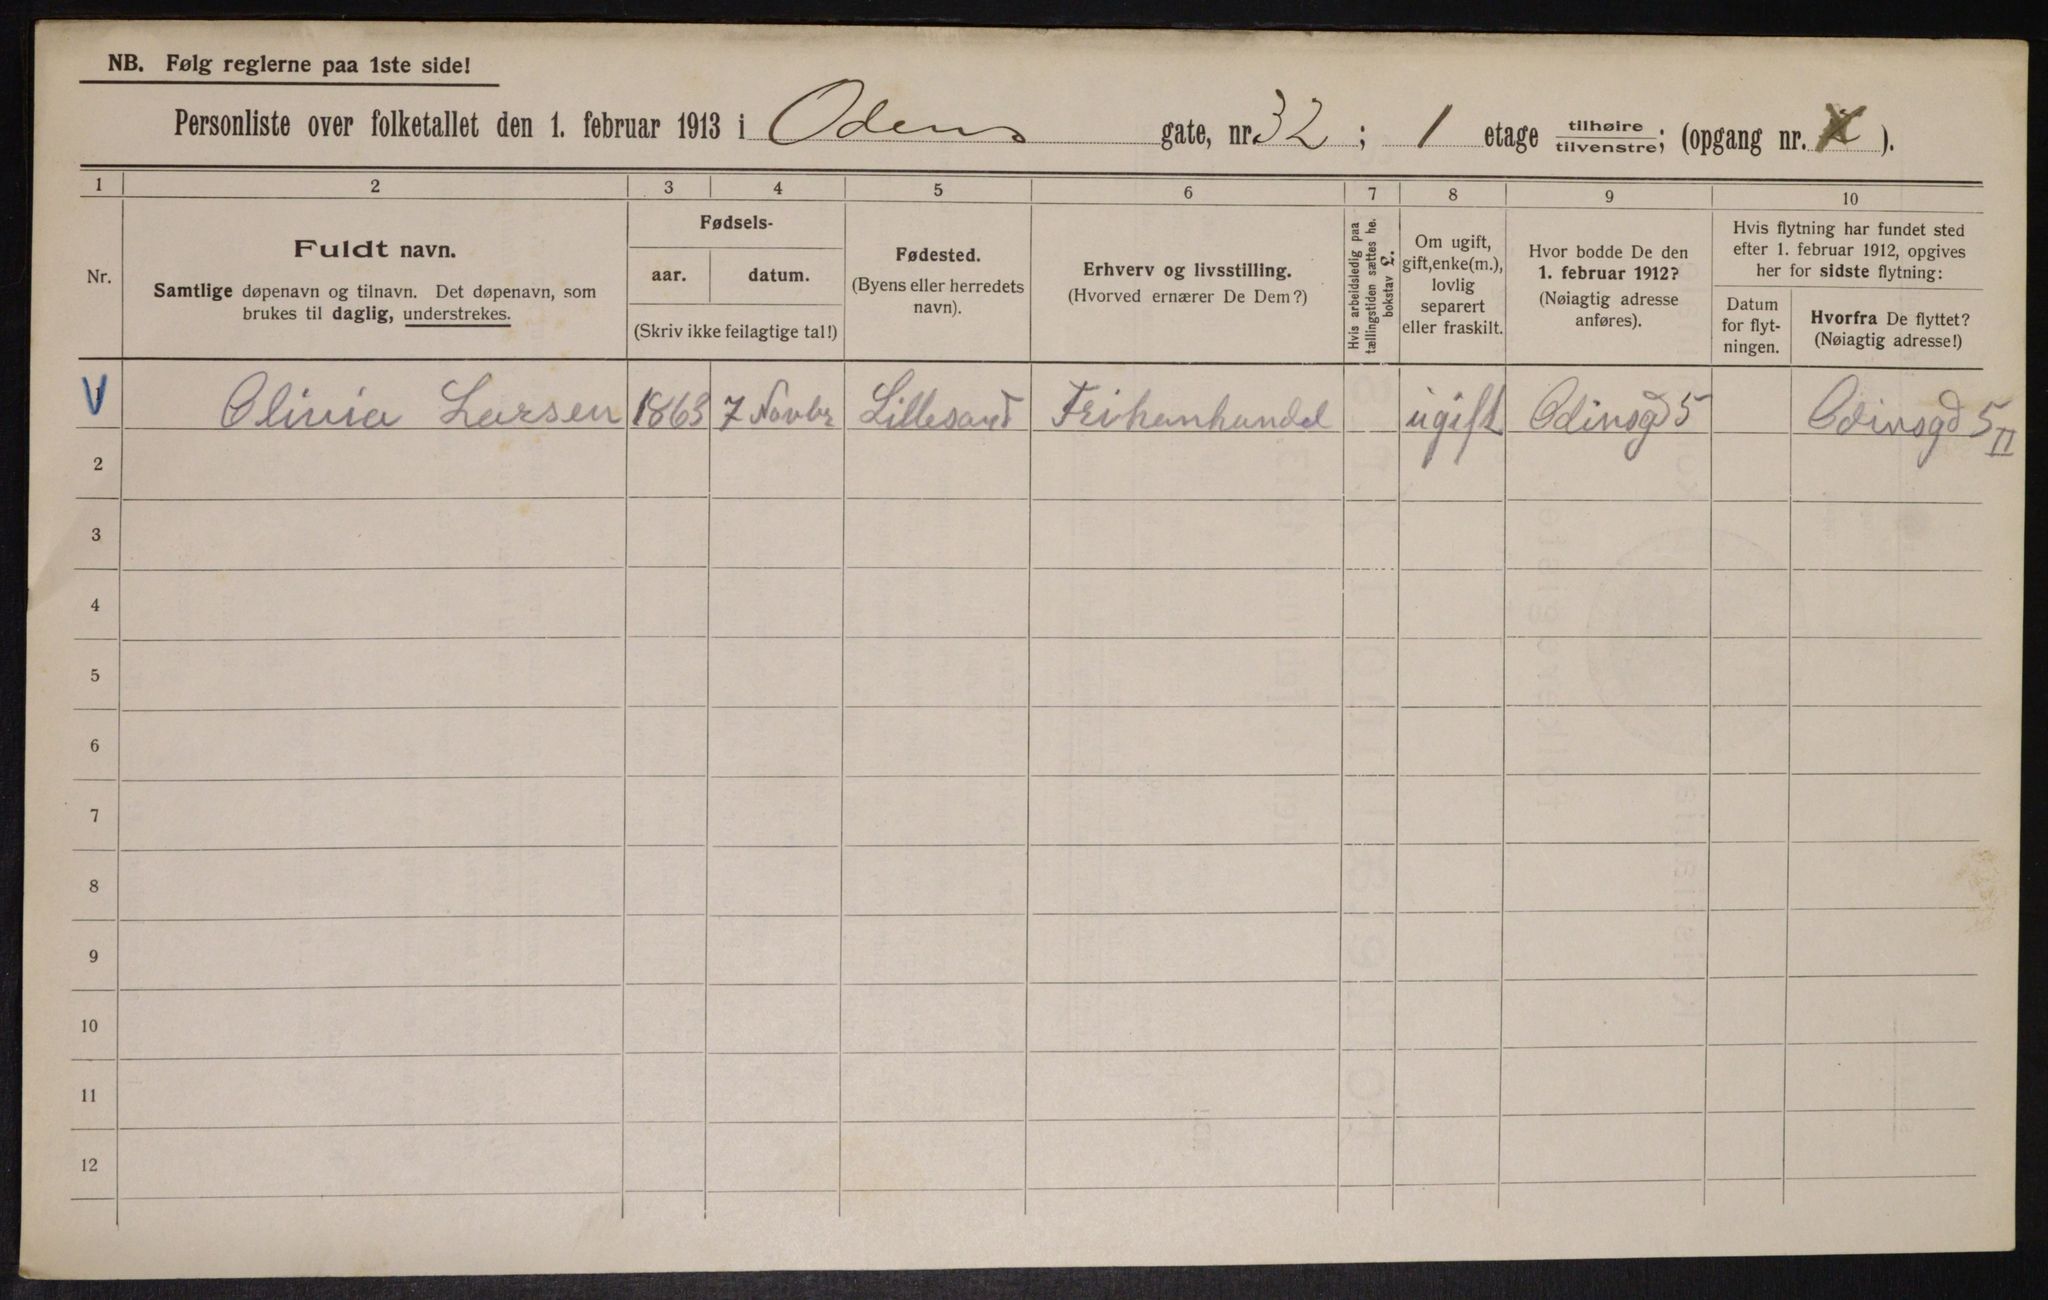 NB. Følg reglerne paa 1ste side!
Personliste over folketallet den 1. februar 1913 i Odens gate, nr. 32; 1 etage tilhøire tilvenstre; (opgang nr. ).
1 2 3 4 5 6 7 8 9 10
Nr.
Fuldt navn.
Samtlige døpenavn og tilnavn. Det døpenavn, som
brukes til daglig, understrekes.
Fødsels-
aar. datum.
(Skriv ikke feilagtige tal!)
Fødested.
(Byens eller herredets
navn).
Erhverv og livsstilling.
(Hvorved ernærer De Dem?)
Hvis arbeidsledig paa
tællingstiden sættes he.
bokstav L.
Om ugift,
gift, enke(m.),
lovlig
separert
eller fraskilt.
Hvor bodde De den
1. februar 1912?
(Nøiagtig adresse
anføres).
Hvis flytning har fundet sted
efter 1. februar 1912, opgives
her for sidste flytning:
Datum
for flyt-
ningen.
Hvorfra De flyttet?
(Nøiagtig adresse!)
Olivia Larsen 1863 7 Novbr Lillesand Frihanhandel ugift Odinsgd 5 Odinsgd 5 II
2
3
4
5
6
7
8
9
10
11
12